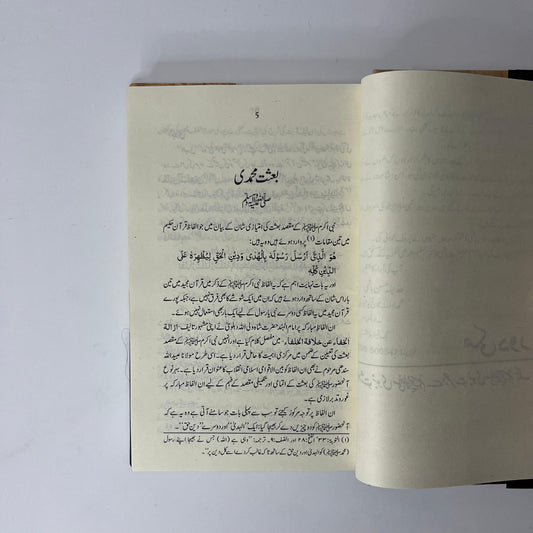 5
بعثت محمدی
صلی اللہ علیہ وسلم
نبی اکرم صلی اللہ علیہ وسلم کے مقصدِ بعثت کی امتیازی شان کے بیان میں جو الفاظ قرآن حکیم
میں تین مقامات (۱) پر وارد ہوئے ہیں وہ یہ ہیں:
هُوَ الَّذِیْ اَرْسَلَ رَسُوْلَهٗ بِالْهُدٰی وَدِیْنِ الْحَقِّ لِیُظْهِرَهٗ عَلَی
الدِّیْنِ کُلِّهٖ
اور یہ بات نہایت اہم ہے کہ یہ الفاظ نبی اکرم صلی اللہ علیہ وسلم کے ذکر میں قرآن مجید میں تین
بار اس شان کے ساتھ وارد ہوئے ہیں کہ ان میں ایک شوشے کا بھی فرق نہیں ہے، جبکہ پورے
قرآن مجید میں یہ الفاظ کسی دوسرے نبی یا رسول کے لیے ایک بار بھی استعمال نہیں ہوئے۔
ان الفاظ مبارکہ پر امام الہند حضرت شاہ ولی اللہ دہلویؒ نے اپنی مشہور تالیف: ازالۃ
الخفاء عن خلافۃ الخلفاء میں مفصل کلام کیا ہے اور انہیں آنحضور صلی اللہ علیہ وسلم کے مقصدِ
بعثت کی تعیین کے ضمن میں مرکزی اہمیت کا حامل قرار دیا ہے۔ اسی طرح مولانا عبید اللہ
سندھی مرحوم نے بھی ان الفاظ کو بین الاقوامی اسلامی انقلاب کا عنوان قرار دیا ہے۔ بہر نوع
آنحضور صلی اللہ علیہ وسلم کی بعثت کے اتمامی اور تکمیلی مقصد کے فہم کے لیے ان الفاظ مبارکہ پر
غور و تدبر لازمی ہے۔
ان الفاظ پر توجہ مرکوز کیجئے تو سب سے پہلی بات جو سامنے آتی ہے وہ یہ ہے کہ
آنحضور صلی اللہ علیہ وسلم کو دو چیزیں دے کر بھیجا گیا: ایک "الہدیٰ" اور دوسرے "دین حق"۔
(۱) التوبۃ: ۳۳، الفتح: ۲۸ اور الصف: ۹۔ ترجمہ: "وہی ہے (اللہ) جس نے بھیجا اپنے رسول
(محمد صلی اللہ علیہ وسلم) کو الہدیٰ اور دین حق کے ساتھ تاکہ غالب کر دے اسے کل دین پر"۔